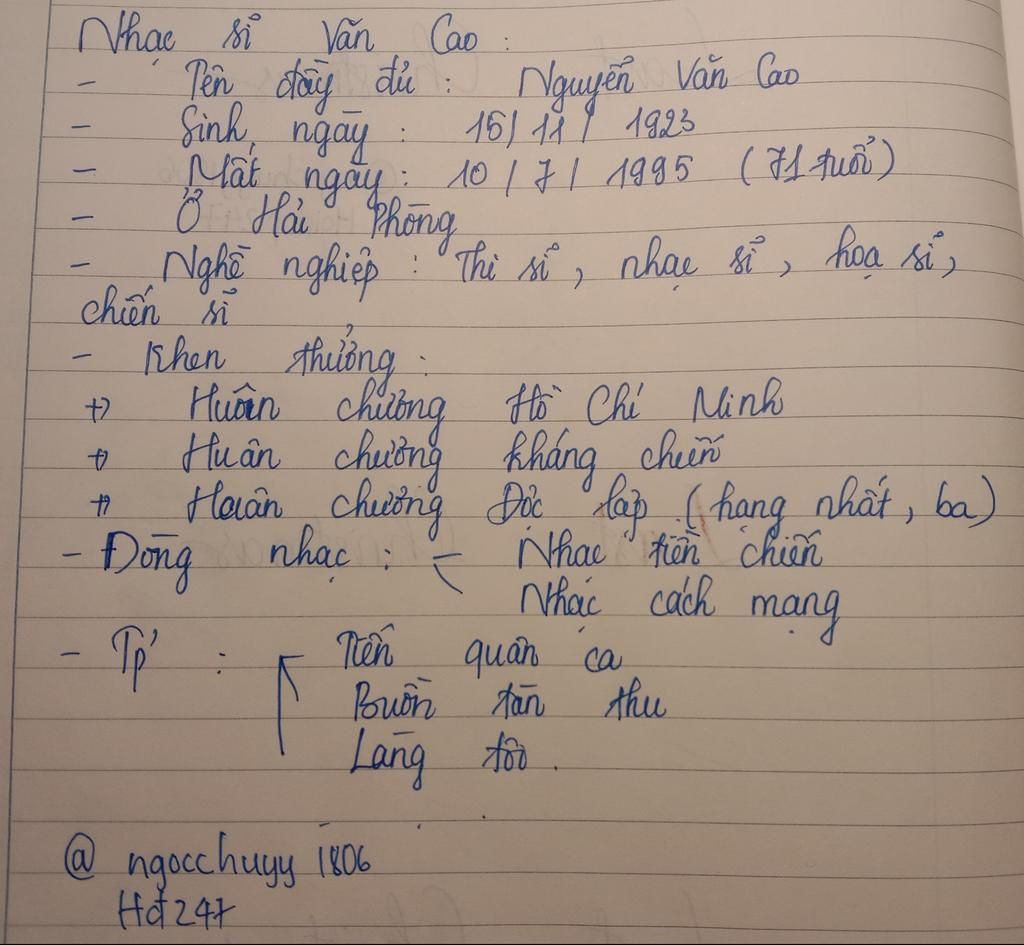 Nhạc sĩ Văn Cao :
- Tên đầy đủ : Nguyễn Văn Cao
- Sinh ngày : 15 / 11 / 1923
- Mất ngày : 10 / 7 / 1995 ( 71 tuổi )
- Ở Hải Phòng
- Nghề nghiệp : Thi sĩ , nhạc sĩ , hoạ sĩ ,
chiến sĩ
- Khen thưởng :
+> Huân chương Hồ Chí Minh
+> Huân chương kháng chiến
+> Huân chương Độc lập ( hạng nhất , ba )
- Dòng nhạc : - Nhạc tiền chiến
Nhạc cách mạng
- Tp' : Tiến quân ca
Buồn tàn thu
Làng tôi .
@ ngocchuyy 1806
Hd247